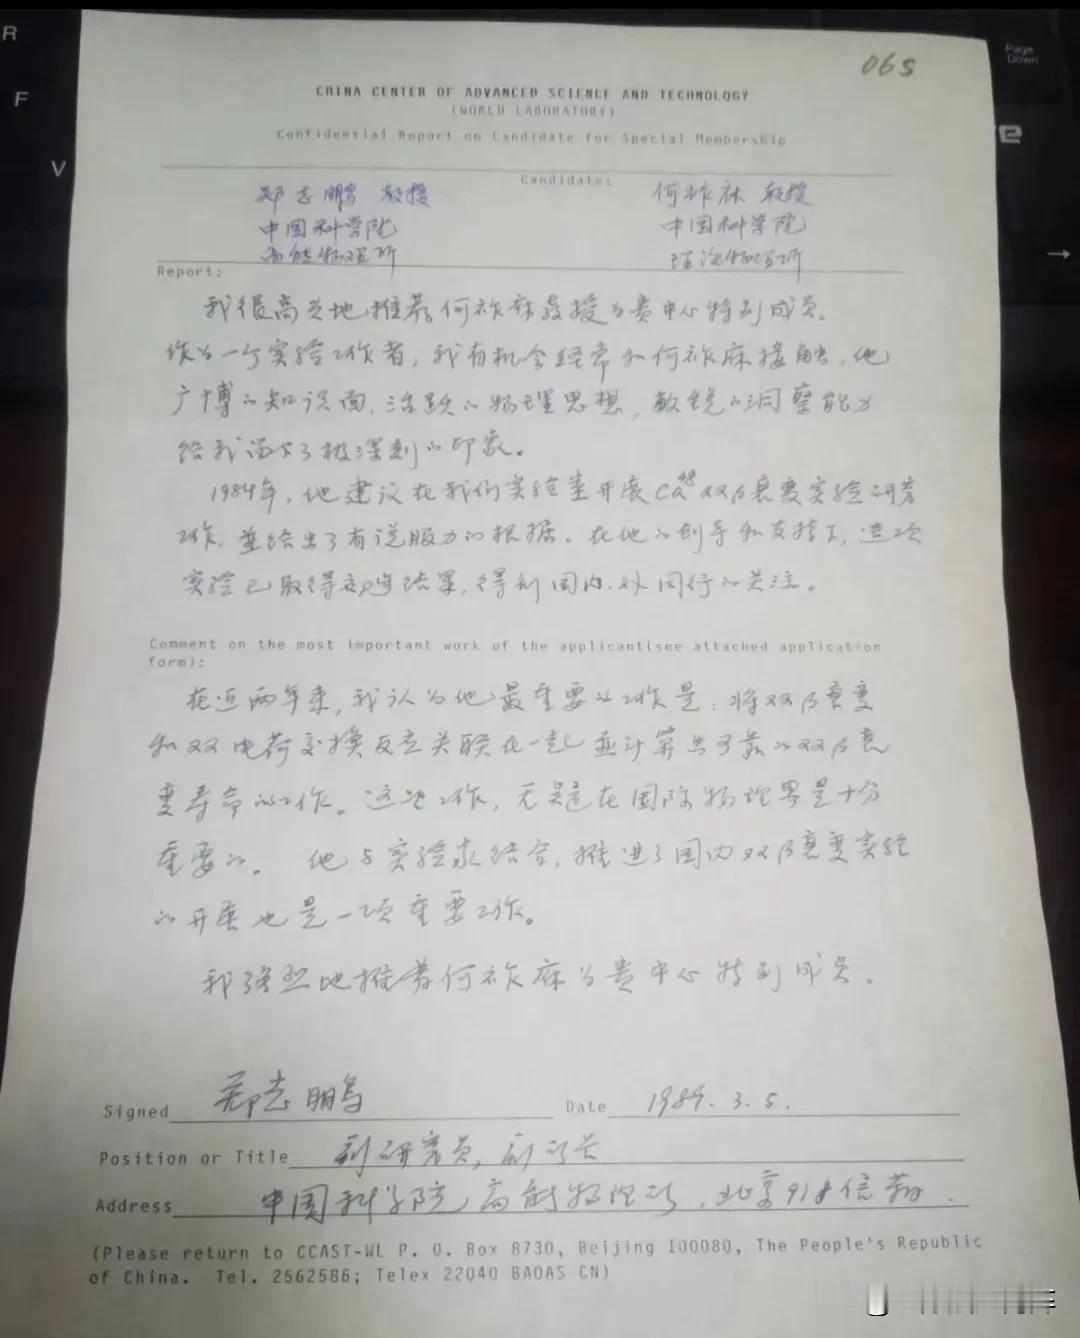 R
F
V
Page
Down
065
CHINA CENTER OF ADVANCED SCIENCE AND TECHNOLOGY
(WORLD LABORATORY)
Confidential Report on Candidate for Special Membership
Candidate:
郑志鹏 教授
中国科学院
高能物理所
何祚庥 教授
中国科学院
理论物理所
Report:
我很高兴地推荐何祚庥教授为贵中心特别成员。
作为一个实验工作者，我有机会经常和何祚庥接触，他
广博的知识面，活跃的物理思想，敏锐的洞察能力
给我留下了极深刻的印象。
1984年，他建议在我们实验室开展Ca⁴⁸双β衰变实验研究
工作，並给出了有说服力的根据。在他的创导和支持下，这项
实验已取得初步结果，得到国内、外同行的关注。
Comment on the most important work of the applicant(see attached application
form):
在近两年来，我认为他最重要的工作是：将双β衰变
和双电荷交换反应关联在一起並计算出可靠的双β衰
变寿命的工作。这些工作，无疑在国际物理界是十分
重要的。他与实验家结合，推进了国内双β衰变实验
的开展也是一项重要工作。
我强烈地推荐何祚庥为贵中心特别成员。
Signed 郑志鹏 Date 1989. 3. 5.
Position or Title 副研究员，副所长
Address 中国科学院高能物理所，北京918信箱.
(Please return to CCAST-WL P. O. Box 8730, Beijing 100080, The People's Republic
of China. Tel. 2562586; Telex 22040 BAOAS CN)